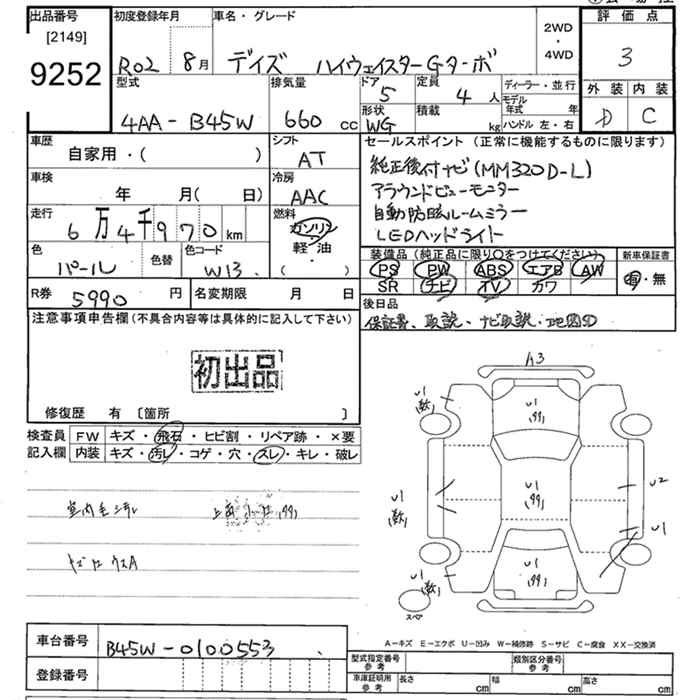 出品番号
[2149]
9252
初度登録年月
R02 8月
車名・グレード
デイズ ハイウェイスターGターボ
2WD
・
4WD
評価点
3
外装 内装
D C
型式
4AA-B45W
排気量
660 cc
ドア
5
定員
4人
ディーラー・並行
モデル年式 年
形状
WG
積載
kg
ハンドル 左・右
車歴
自家用・( )
シフト
AT
車検
年 月( 日)
冷房
AAC
走行
6万4千970 km
燃料
ガソリン
軽・油
( )
色
パール
色替
色コード
W13
セールスポイント(正常に機能するものに限ります)
純正後付ナビ(MM320D-L)
アラウンドビューモニター
自動防眩ルームミラー
LEDヘッドライト
装備品(純正品に限り○をつけてください)
PS PW ABS エアB AW
SR ナビ TV カワ
新車保証書
有・無
R券
5990円
名変期限 月 日
後日品
保証書、取説、ナビ取説・地図SD
注意事項申告欄(不具合内容等は具体的に記入して下さい)
初出品
修復歴 有 〔箇所 〕
検査員
記入欄
FW キズ・飛石・ヒビ割・リペア跡・×要
内装 キズ・汚レ・コゲ・穴・スレ・キレ・破レ
A3
U1
(数)
U1
(99)
U1
(数)
U1
(99)
U2
U1
U1
(数)
U1
(99)
スペア
A-キズ E-エクボ U-凹み W-補修跡 S-サビ C-腐食 XX-交換済
車台番号
B45W-0100553
登録番号
型式指定番号
参考
類別区分番号
参考
車庫証明用
参考
長さ cm 幅 cm 高さ cm